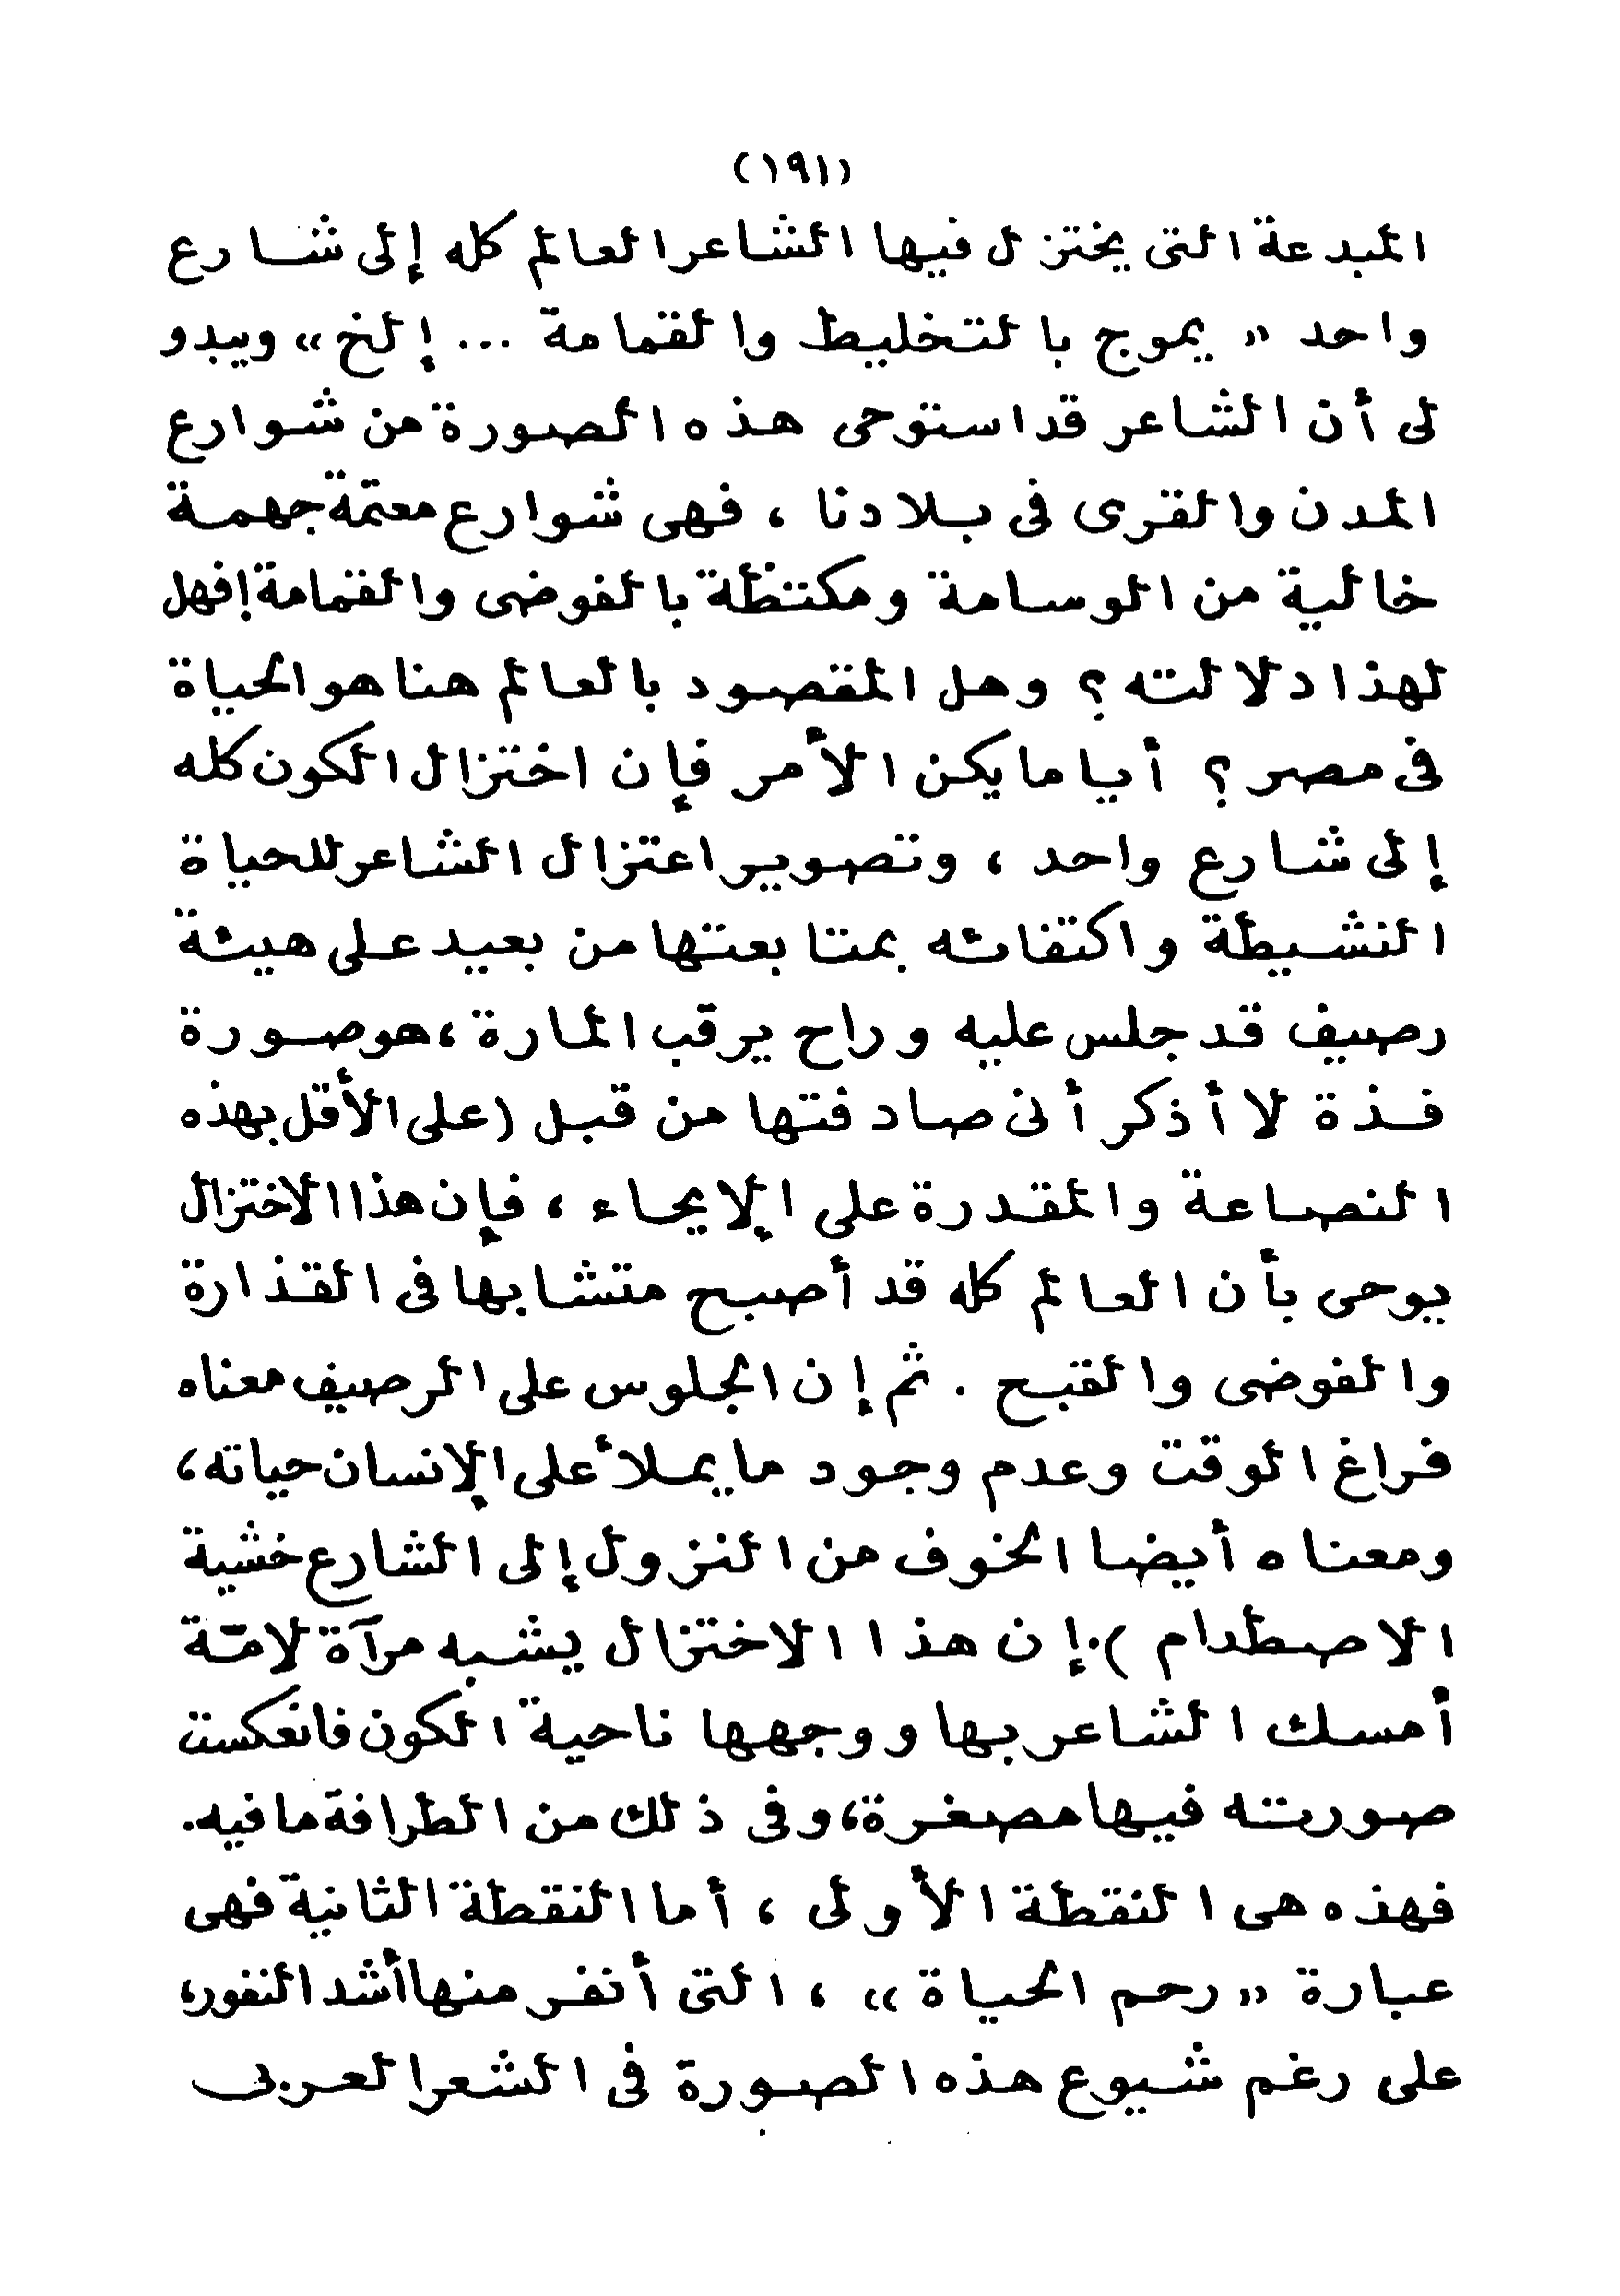 (١٩١)
المبدعة التى يختزل فيها الشاعر العالم كله إلى شارع
واحد « يموج بالتخليط والقمامة ... إلخ » ويبدو
لى أن الشاعر قد استوحى هذه الصورة من شوارع
المدن والقرى فى بلادنا ، فهى شوارع معتمة جهمة
خالية من الوسامة ومكتظة بالفوضى والقمامة! فهل
لهذا دلالته ؟ وهل المقصود بالعالم هنا هو الحياة
فى مصر ؟ أيا ما يكن الأمر فإن اختزال الكون كله
إلى شارع واحد ، وتصوير اعتزال الشاعر للحياة
النشيطة واكتفائه بمتابعتها من بعيد على هيئة
رصيف قد جلس عليه وراح يرقب المارة ، هو صورة
فذة لا أذكر أنى صادفتها من قبل (على الأقل بهذه
النصاعة والمقدرة على الإيحاء ، فإن هذا الاختزال
يوحى بأن العالم كله قد أصبح متشابها فى القذارة
والفوضى والقبح . ثم إن الجلوس على الرصيف معناه
فراغ الوقت وعدم وجود ما يملأ على الإنسان حياته ،
ومعناه أيضا الخوف من النزول إلى الشارع خشية
الاصطدام ). إن هذا الاختزال يشبه مرآة لامّة
أمسك الشاعر بها ووجهها ناحية الكون فانعكست
صورته فيها مصغرة ، وفى ذلك من الطرافة ما فيه .
فهذه هى النقطة الأولى ، أما النقطة الثانية فهى
عبارة « رحم الحياة » ، التى أنفر منها أشد النفور ،
على رغم شيوع هذه الصورة فى الشعر العربى